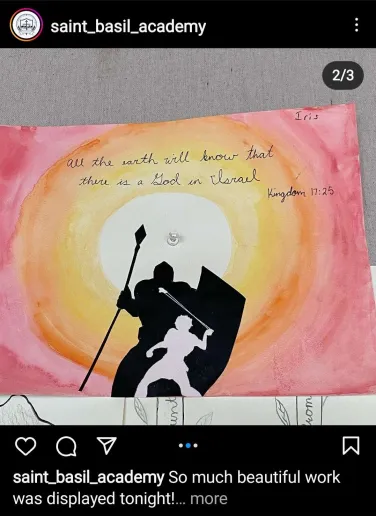 saint_basil_academy
2/3
Iris
All the earth will know that
there is a God in Israel
Kingdom 17:25
saint_basil_academy So much beautiful work
was displayed tonight!... more